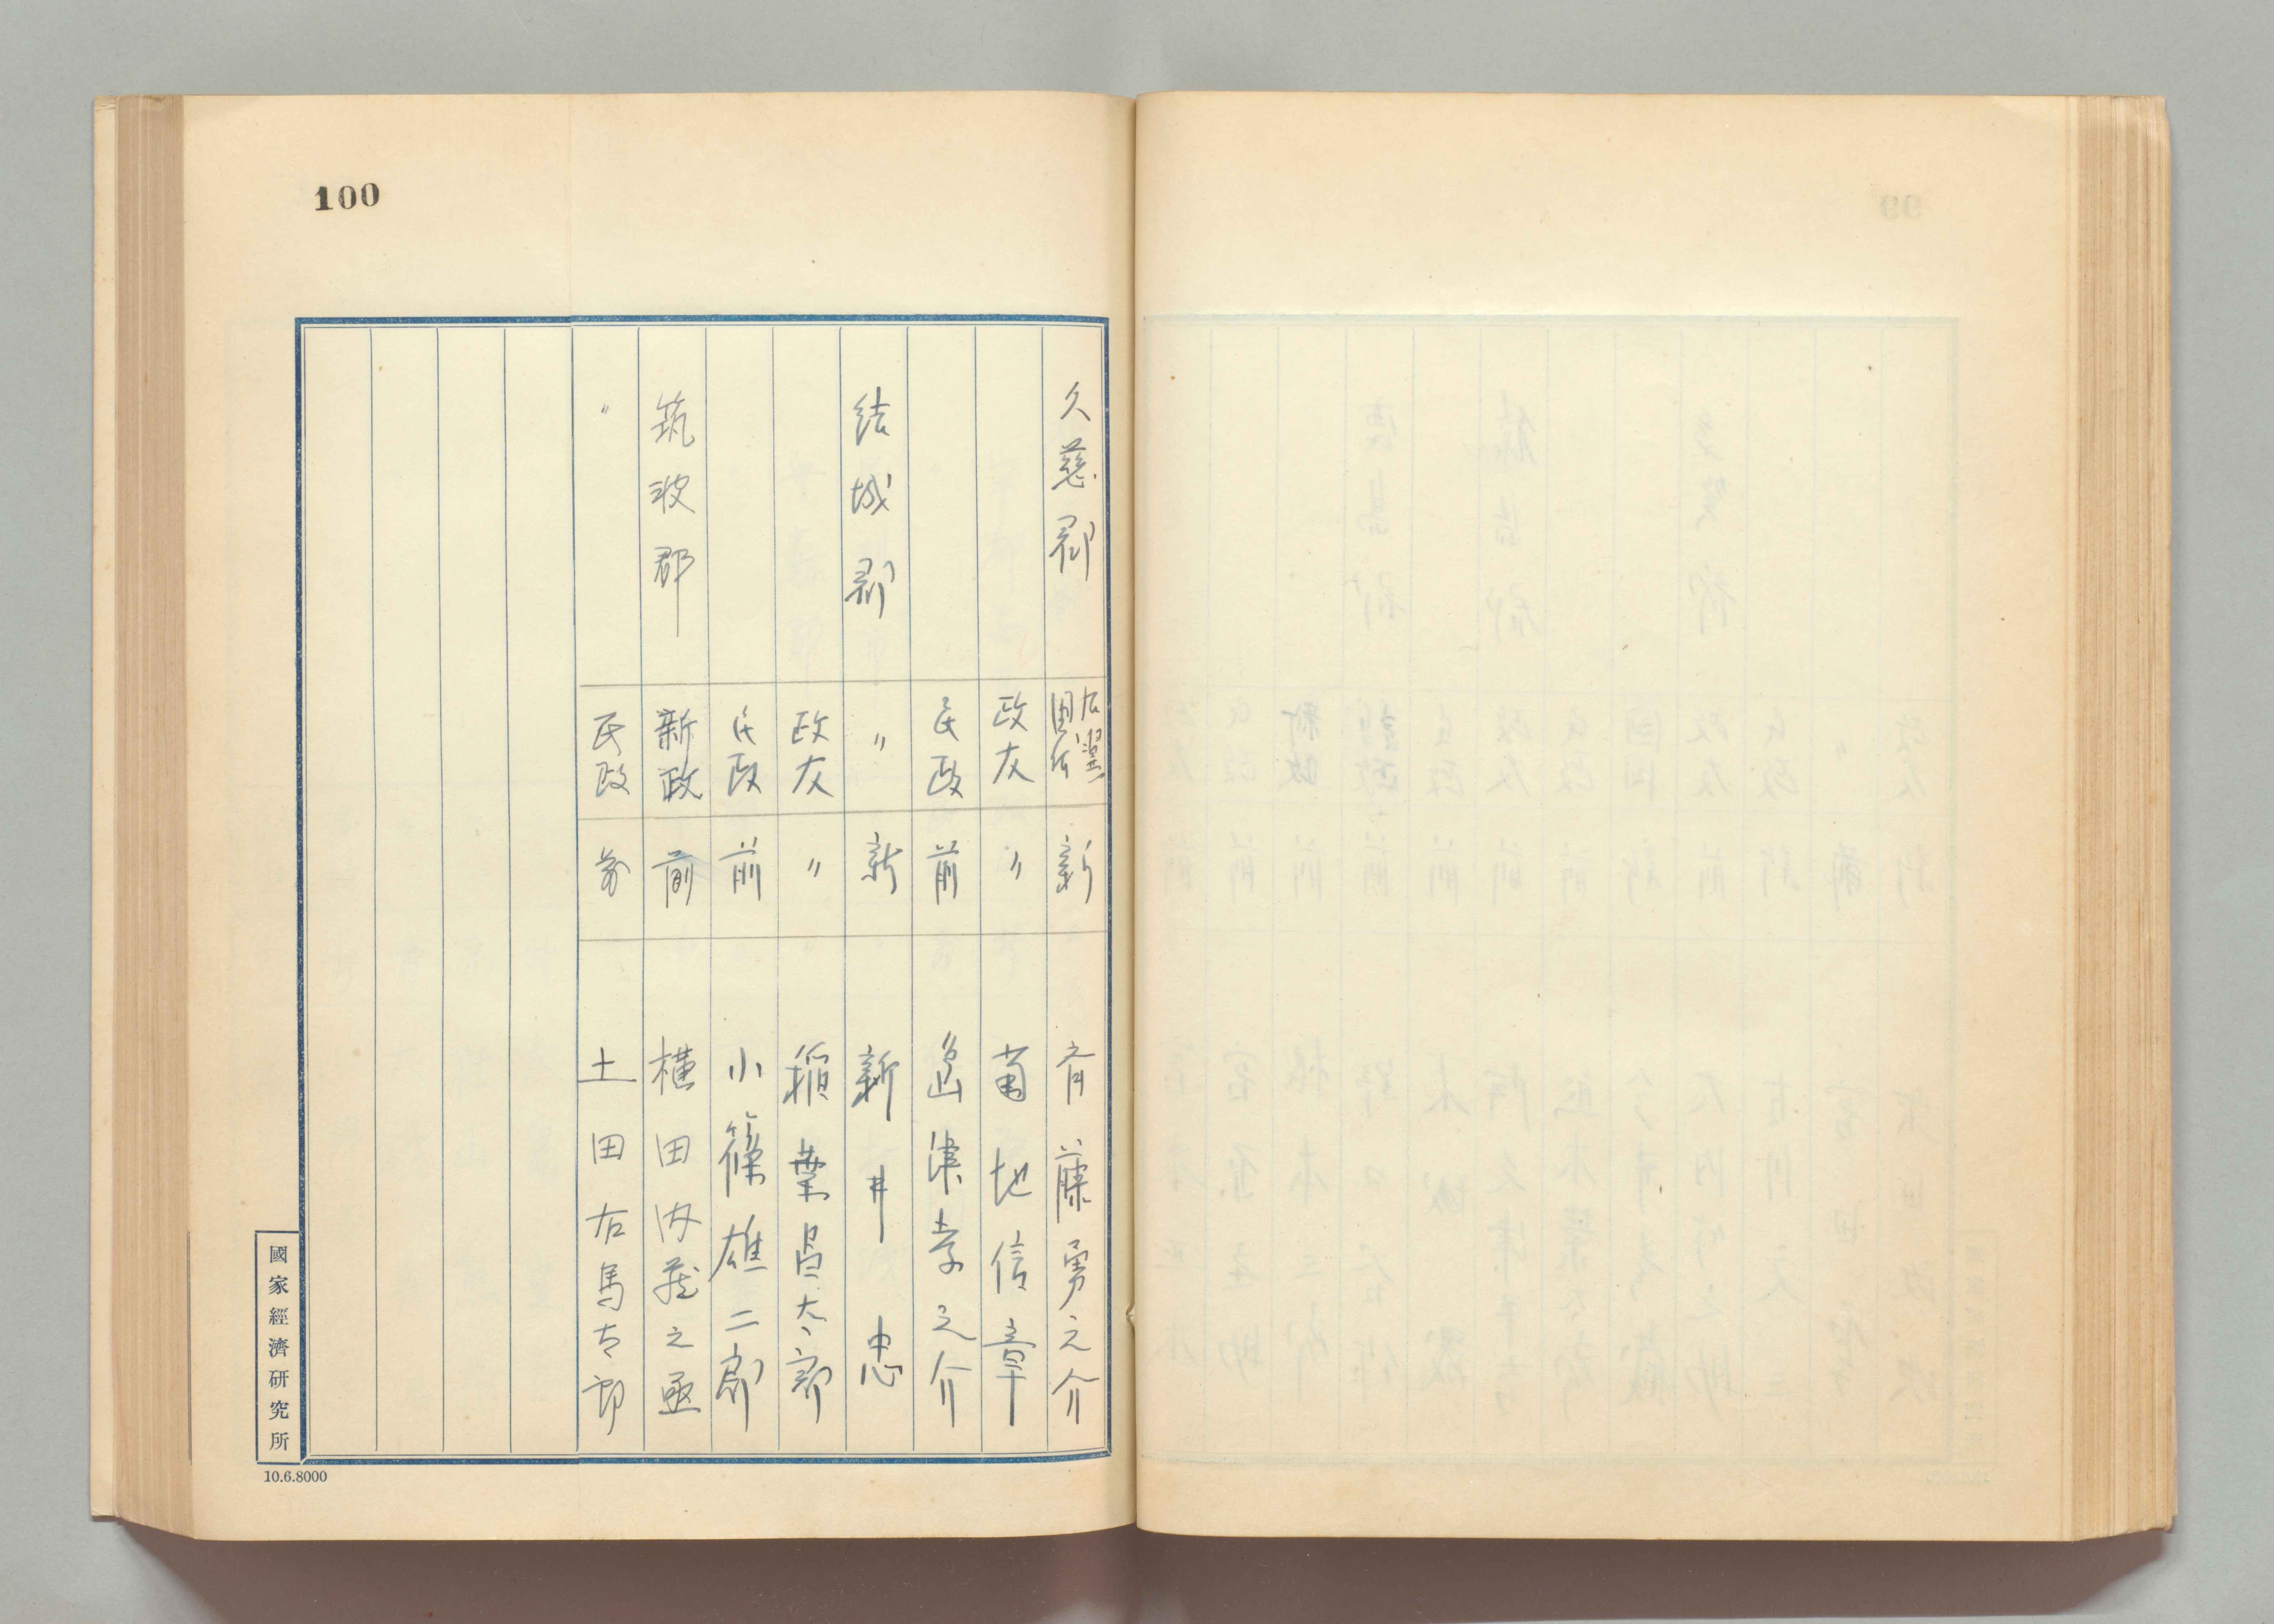 100
久慈郡 右翼団体 新 斉藤勇之介
政友 〃 菊地信章
民政 前 島津孝之介
結城郡 〃 新 新井忠
政友 〃 稲葉昌太郎
民政 前 小篠雄二郎
筑波郡 新政 前 横田内蔵之丞
〃 民政 前 土田右馬太郎
國家經濟研究所
10.6.8000